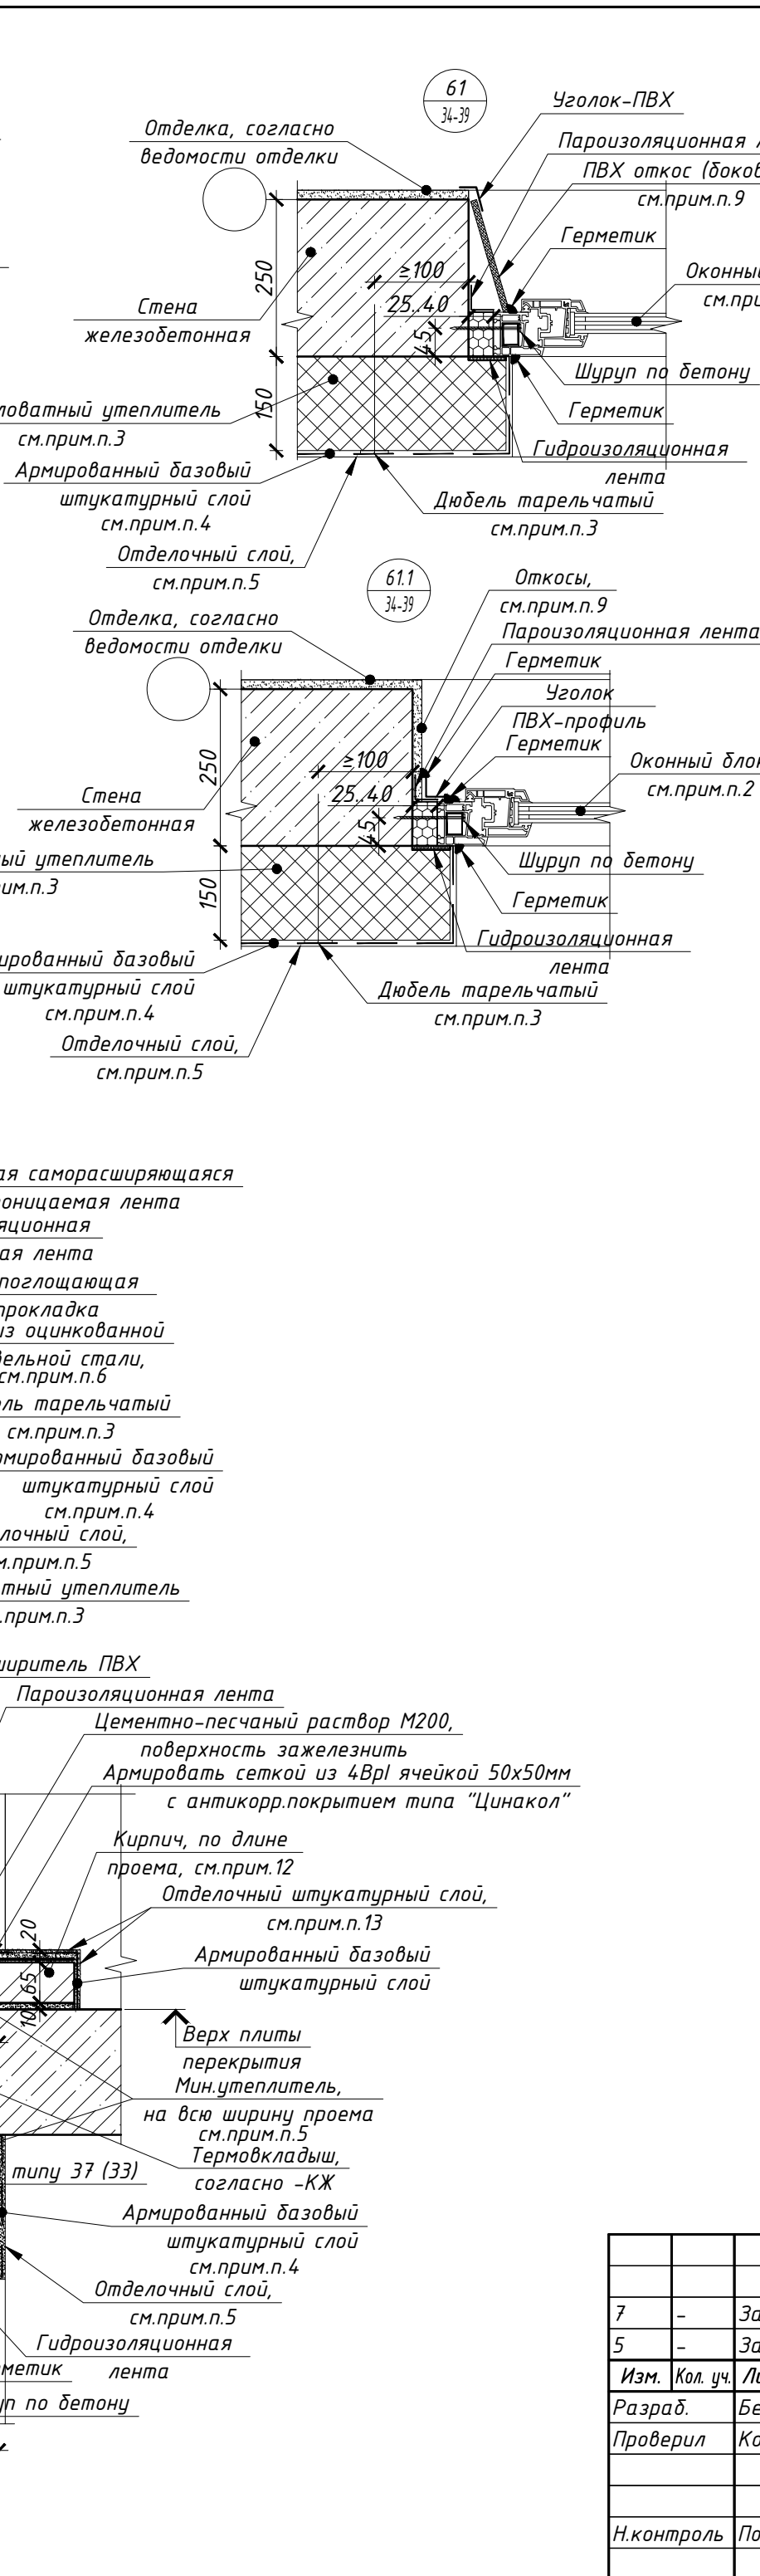 61
34-39
Уголок-ПВХ
Отделка, согласно
ведомости отделки
Пароизоляционная
ПВХ откос (боков
см.прим.п.9
Герметик
Оконный
см.при
250
≥100
25..40
45
Стена
железобетонная
Шуруп по бетону
Герметик
150
ловатный утеплитель
см.прим.п.3
Гидроизоляционная
лента
Армированный базовый
штукатурный слой
см.прим.п.4
Дюбель тарельчатый
см.прим.п.3
Отделочный слой,
см.прим.п.5
61.1
34-39
Откосы,
см.прим.п.9
Отделка, согласно
ведомости отделки
Пароизоляционная лента
Герметик
Уголок
ПВХ-профиль
Герметик
Оконный блок
см.прим.п.2
250
≥100
25..40
45
Стена
железобетонная
Шуруп по бетону
ый утеплитель
им.п.3
150
Герметик
Гидроизоляционная
лента
ированный базовый
штукатурный слой
см.прим.п.4
Дюбель тарельчатый
см.прим.п.3
Отделочный слой,
см.прим.п.5
ая саморасширяющаяся
роницаемая лента
яционная
ая лента
поглощающая
прокладка
из оцинкованной
дельной стали,
см.прим.п.6
ель тарельчатый
см.прим.п.3
рмированный базовый
штукатурный слой
см.прим.п.4
лочный слой,
м.прим.п.5
тный утеплитель
.прим.п.3
ширитель ПВХ
Пароизоляционная лента
Цементно-песчаный раствор М200,
поверхность зажелезнить
Армировать сеткой из 4ВрI ячейкой 50х50мм
с антикорр.покрытием типа "Цинакол"
Кирпич, по длине
проема, см.прим.12
Отделочный штукатурный слой,
см.прим.п.13
20
65
10
Армированный базовый
штукатурный слой
Верх плиты
перекрытия
Мин.утеплитель,
на всю ширину проема
см.прим.п.5
Термовкладыш,
согласно -КЖ
типу 37 (33)
Армированный базовый
штукатурный слой
см.прим.п.4
Отделочный слой,
см.прим.п.5
Гидроизоляционная
лента
рметик
уп по бетону
7 - За
5 - За
Изм. Кол. уч. Ли
Разраб. Бе
Проверил Ко
Н.контроль По